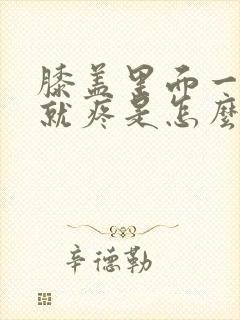 膝盖里面一
就疼是怎麼
辛德勒